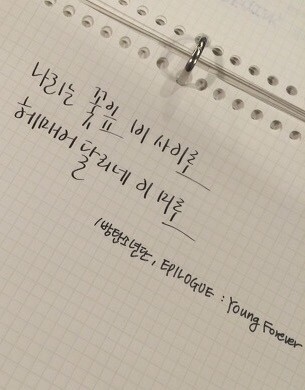 나리는 꽃잎 비 사이로
헤매어 달리네 이 미로
/방탄소년단, EPILOGUE : Young Forever